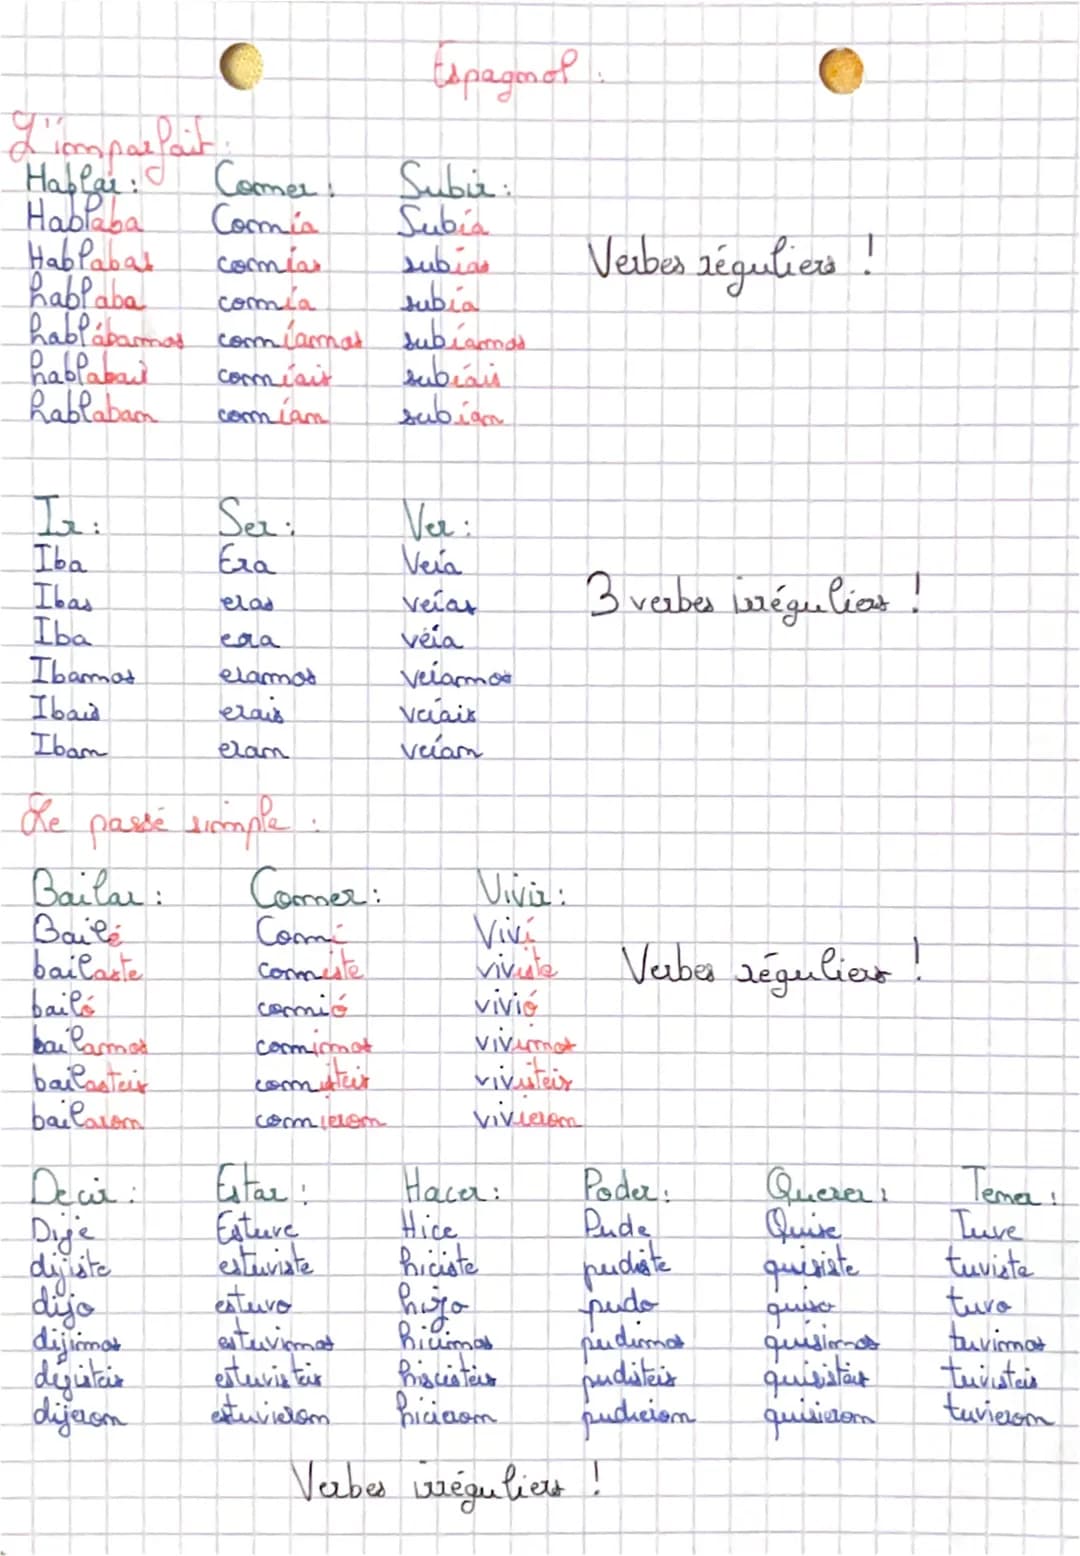 Espagnol :
L'imparfait :
Hablar : Comer : Subir :
Hablaba Comía Subía
Hablabas comías subías
hablaba comía subía
Verbes réguliers !
hablábamos comíamos subíamos
hablabais comíais subíais
hablaban comían subían
Ir : Ser : Ver :
Iba Era Veía
Ibas eras veías
3 verbes irréguliers !
Iba era veía
Ibamos eramos veíamos
Ibais erais veíais
Iban eran veían
Le passé simple :
Bailar : Comer : Vivir :
Bailé Comí Viví
bailaste comiste viviste
Verbes réguliers !
bailó comió vivió
bailamos comimos vivimos
bailasteis comisteis vivisteis
bailaron comieron vivieron
Decir : Estar : Hacer : Poder : Querer : Tener :
Dije Estuve Hice Pude Quise Tuve
dijiste estuviste hiciste pudiste quisiste tuviste
dijo estuvo pudo quiso tuvo
dijimos estuvimos hicimos pudimos quisimos tuvimos
dijisteis estuvisteis hiscisteis pudisteis quisisteis tuvisteis
dijeron estuvieron hicieron pudieion quisieron tuvieron
Verbes irréguliers !